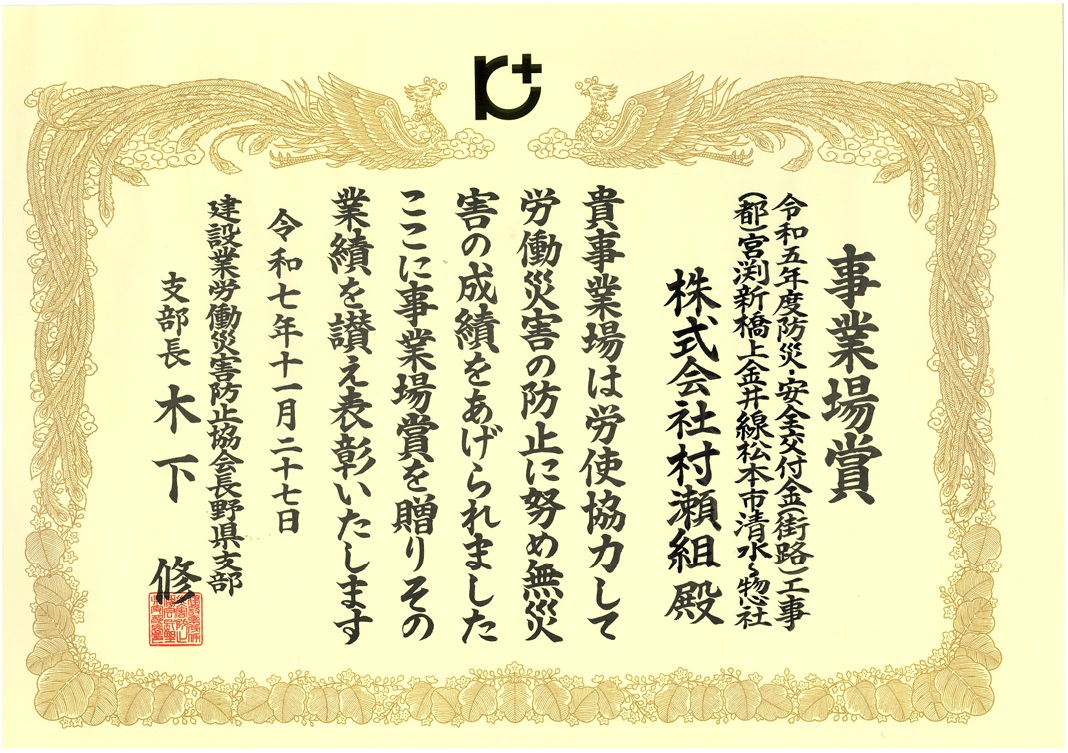 事業場賞
令和五年度防災・安全交付金(街路)工事
(都)宮渕新橋上金井線松本市清水～惣社
株式会社村瀬組殿
貴事業場は労使協力して
労働災害の防止に努め無災
害の成績をあげられました
ここに事業場賞を贈りその
業績を讃え表彰いたします
令和七年十一月二十七日
建設業労働災害防止協会長野県支部
支部長 木下 修